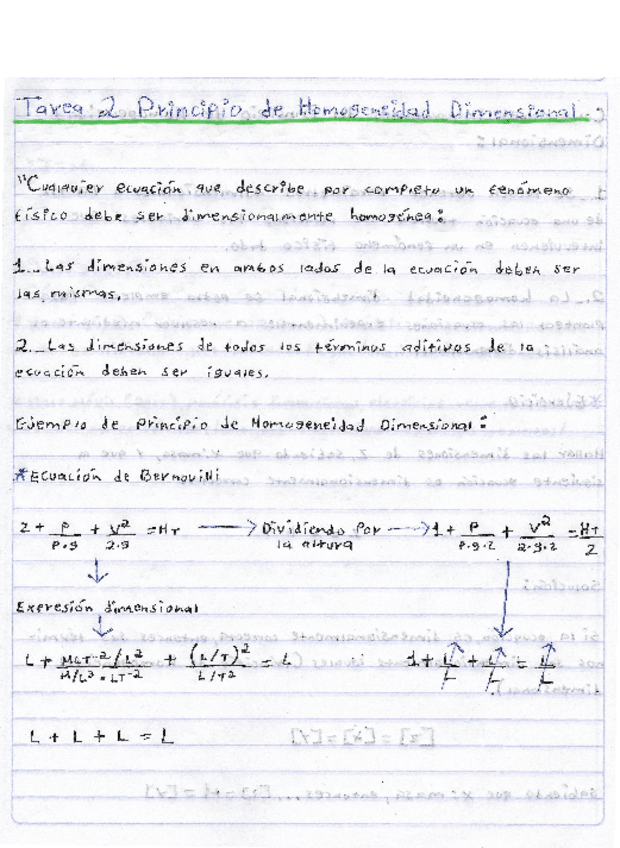 Tarea 2 Principio de Homogeneidad Dimensional.
"Cualquier ecuación que describe por completo un fenómeno
físico debe ser dimensionalmente homogénea:
1._ Las dimensiones en ambos lados de la ecuación deben ser
las mismas.
2._ Las dimensiones de todos los términos aditivos de la
ecuación deben ser iguales.
Ejemplo de Principio de Homogeneidad Dimensional:
*Ecuación de Bernoulli
z + P/ρ.g + V²/2.g = HT → Dividiendo por la altura → 1 + P/ρ.g.z + V²/2.g.z = HT/z
Expresión dimensional
L + MLT⁻²/L² / M/L³ = LT⁻² + (L/T)² / L/T² = L ∴ 1 + L/L + L/L = L/L
L + L + L = L